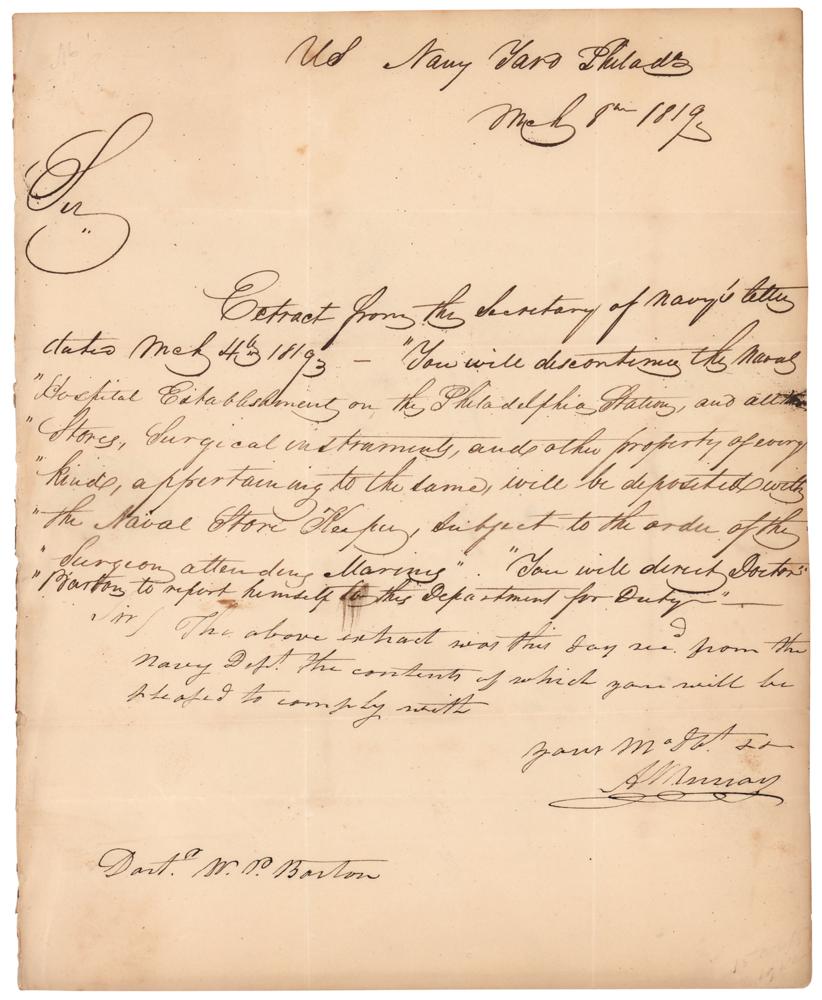 US Navy Yard Philada
Mch 8th 1819
Sir
Extract from the Secretary of Navy's letter
dated Mch 4th 1819 — "You will discontinue the Naval
"Hospital Establishment on the Philadelphia Station, and all the
"Stores, Surgical instruments, and other property of every
"kind, appertaining to the same, will be deposited with
"the Naval Store Keeper, subject to the order of the
"Surgeon attending Marines". "You will direct Doctor"
"Barton to report himself to this Department for Duty" —
Sir/ The above extract was this day recd. from the
Navy Dept. the contents of which you will be
pleased to comply with
your Mo Obt. St
A Murray
Doctr. W. P. Barton